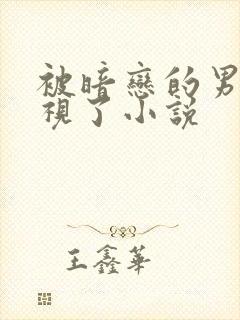 被暗戀的男
視了小説
王鑫華